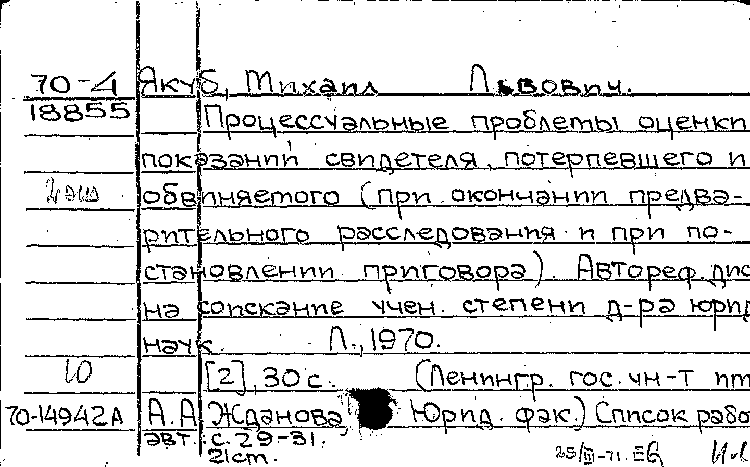 70-4 Якуб, Михаил Львович.
18855 Процессуальные проблемы оценки
показаний свидетеля, потерпевшего и
обвиняемого (при окончании предва-
рительного расследования и при по-
становлении приговора). Автореф. дис
на соискание учен. степени д-ра юрид
наук. Л., 1970.
10 [2], 30 с. (Ленингр. гос. ун-т им
70-14942А А.А Жданова Юрид. фак.) Список рабо
авт.: с. 29-31.
21 см.